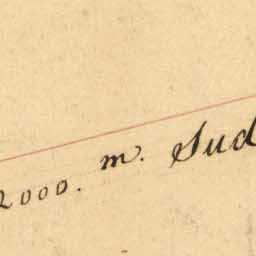 2000. m. Sud